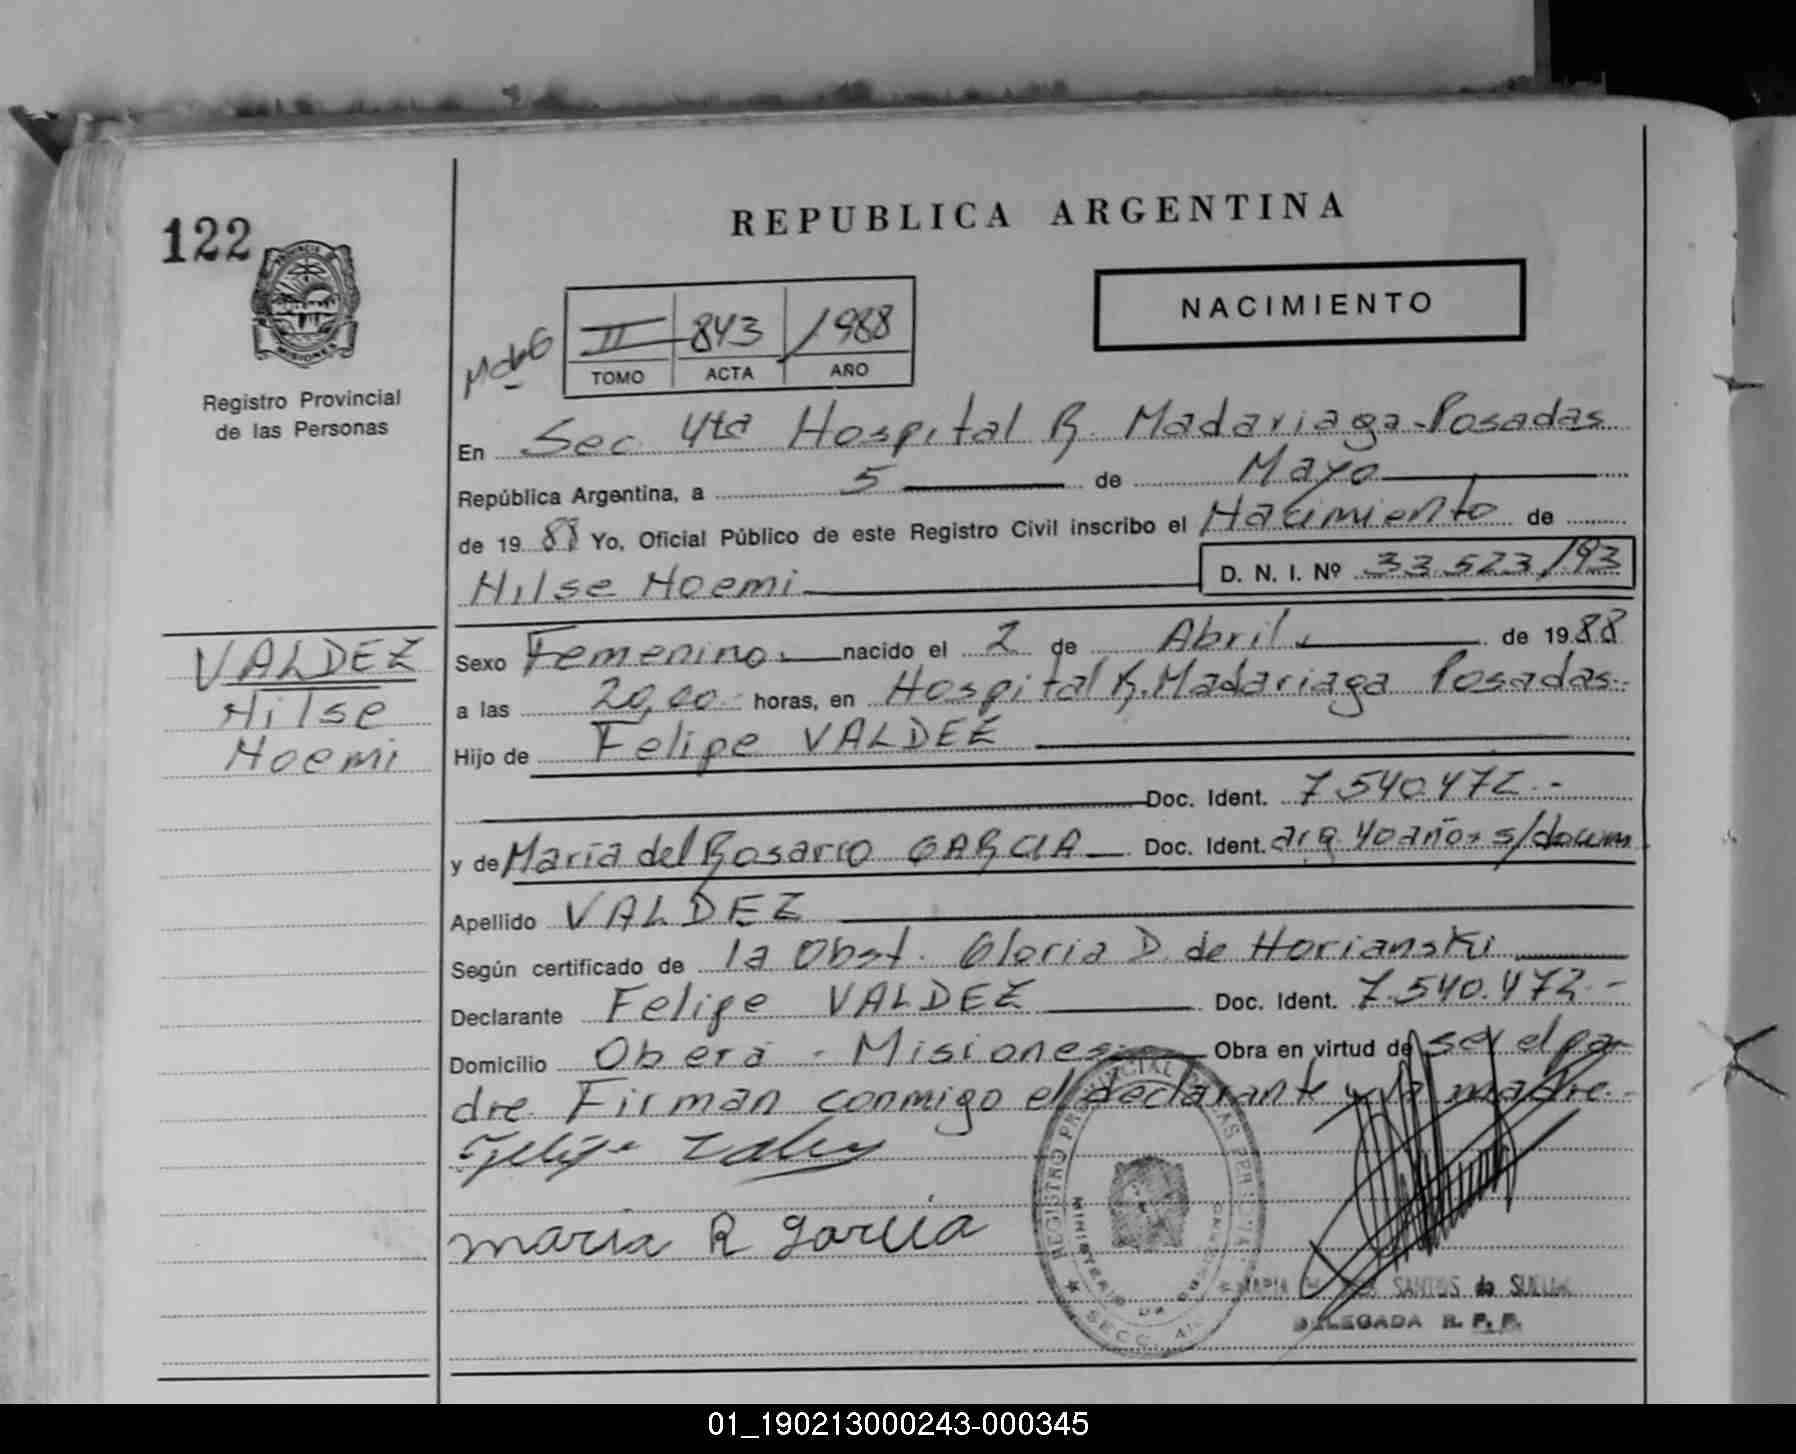 REPUBLICA ARGENTINA
122
PROVINCIA DE
MISIONES
Registro Provincial
de las Personas
NACIMIENTO
II 843 1988
TOMO ACTA AÑO
En Sec. 4ta Hospital R. Madariaga - Posadas
República Argentina, a 5 de Mayo
de 1988 Yo, Oficial Público de este Registro Civil inscribo el Nacimiento de
Nilse Noemi D. N. I. Nº 33.523/193
VALDEZ
Nilse
Noemi
Sexo Femenino. nacido el 2 de Abril. de 1988
a las 20,00 horas, en Hospital R. Madariaga Posadas.-
Hijo de Felipe VALDEZ
Doc. Ident. 7.540.472.-
y de Maria del Rosario GARCIA Doc. Ident. arg. 40 años s/docum
Apellido VALDEZ
Según certificado de la Obst. Gloria D. de Horianski
Declarante Felipe VALDEZ Doc. Ident. 7.540.472.-
Domicilio Oberá - Misiones Obra en virtud de ser el pa-
dre. Firman conmigo el declarante y la madre.-
Felipe Valdez
maria R garcia
REGISTRO PROVINCIAL DE LAS PERSONAS
MINISTERIO DE GOBIERNO
SECC.
SANTOS de
DELEGADA R. P. P.
01_190213000243-000345